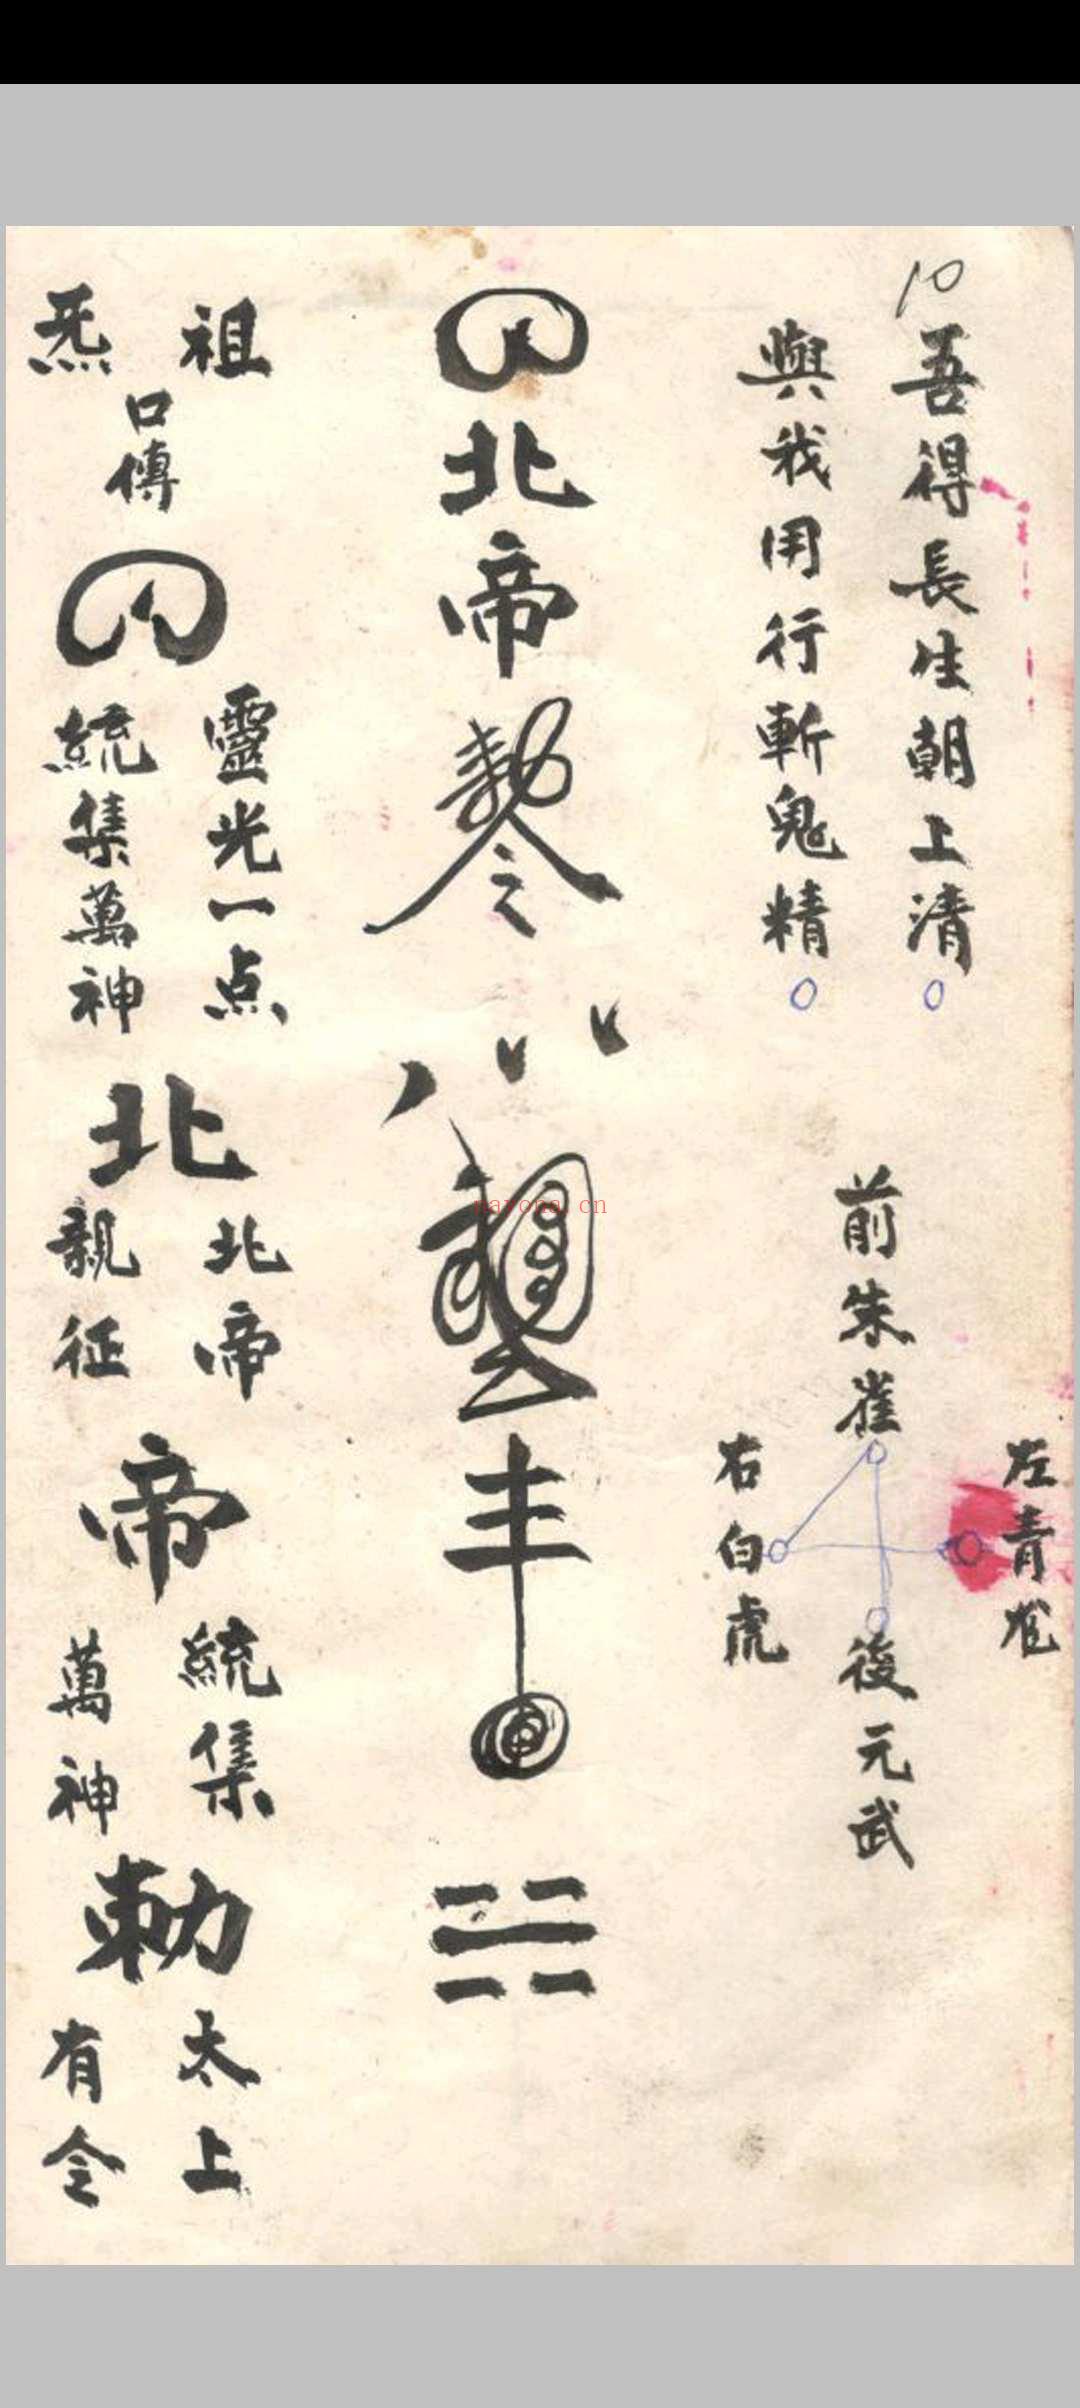 10
吾得長生朝上清
與我用行斬鬼精
前朱雀
左青龙
右白虎
後元武
北帝
勅令
祖炁
口傳
靈光一点
統集萬神
北
北帝
親征
帝
統集
萬神
勅
太上
有令
nayona.cn